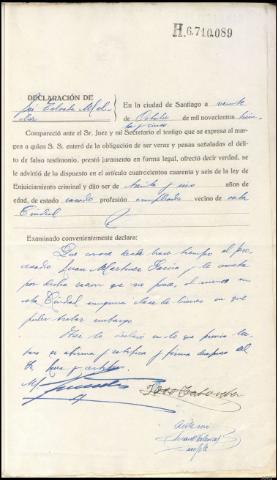 H.6.710.089
DECLARACIÓN DE
José Taboada
En la ciudad de Santiago a veinte
de Octubre de mil novecientos trein
ta y cinco
Compareció ante el Sr. Juez y mi Secretario el testigo que se expresa al mar-
gen a quien S. S. enteró de la obligación de ser veraz y penas señaladas el delito
de falso testimonio, prestó juramento en forma legal, ofreció decir verdad, se
le advirtió de lo dispuesto en el artículo cuatrocientos cuarenta y seis de la ley de
Enjuiciamiento criminal y dijo ser de treinta y uno años de
edad, de estado casado profesión empleado vecino de esta
Ciudad
Examinado convenientemente declara:
Que conoce desde hace tiempo al pro
cesado Juan Martínez García y le consta
por dicha razón que no posee, al menos en
esta Ciudad ninguna clase de bienes en que
poder trabar embargo.
Leída
se afirma y ratifica y firma después del
Sr. Juez
José Taboada